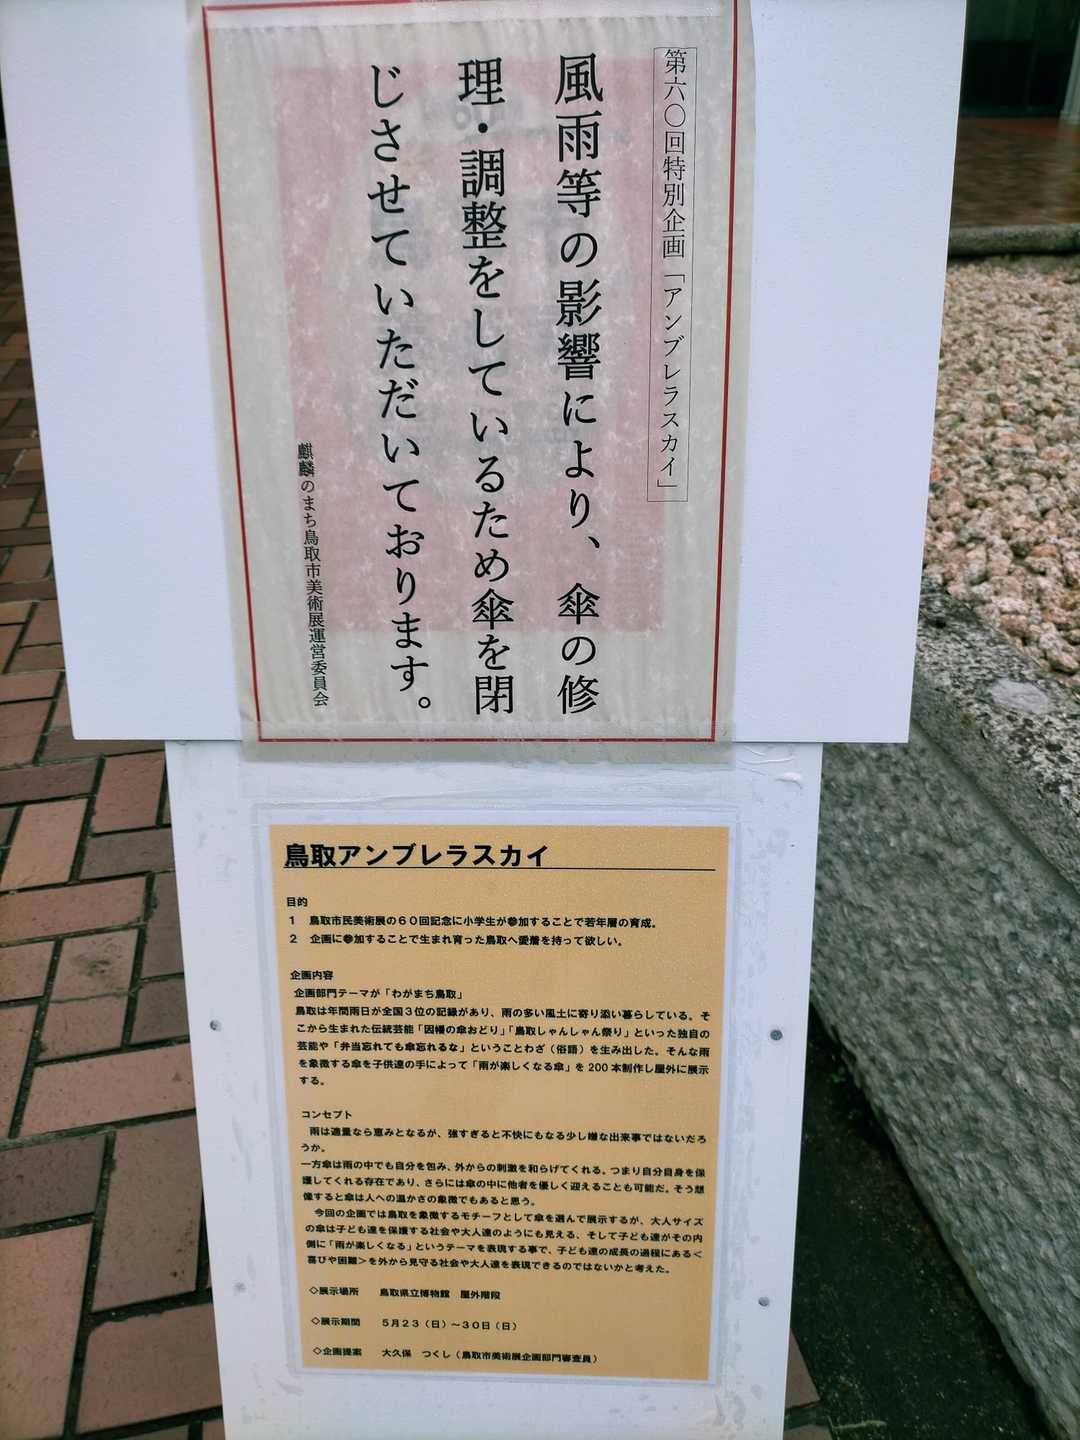 第六〇回特別企画「アンブレラスカイ」
風雨等の影響により、傘の修
理・調整をしているため傘を閉
じさせていただいております。
麒麟のまち鳥取市美術展運営委員会
鳥取アンブレラスカイ
目的
1 鳥取市民美術展の60回記念に小学生が参加することで若年層の育成。
2 企画に参加することで生まれ育った鳥取へ愛着を持って欲しい。
企画内容
企画部門テーマが「わがまち鳥取」
鳥取は年間雨日が全国3位の記録があり、雨の多い風土に寄り添い暮らしている。そ
こから生まれた伝統芸能「因幡の傘おどり」「鳥取しゃんしゃん祭り」といった独自の
芸能や「弁当忘れても傘忘れるな」ということわざ（俗語）を生み出した。そんな雨
を象徴する傘を子供達の手によって「雨が楽しくなる傘」を200本制作し屋外に展示
する。
コンセプト
雨は適量なら恵みとなるが、強すぎると不快にもなる少し嫌な出来事ではないだろ
うか。
一方傘は雨の中でも自分を包み、外からの刺激を和らげてくれる。つまり自分自身を保
護してくれる存在であり、さらには傘の中に他者を優しく迎えることも可能だ。そう想
像すると傘は人への温かさの象徴でもあると思う。
今回の企画では鳥取を象徴するモチーフとして傘を選んで展示するが、大人サイズ
の傘は子ども達を保護する社会や大人達のようにも見える、そして子ども達がその内
側に「雨が楽しくなる」というテーマを表現する事で、子ども達の成長の過程にある＜
喜びや困難＞を外から見守る社会や大人達を表現できるのではないかと考えた。
◇展示場所 鳥取県立博物館 屋外階段
◇展示期間 5月23（日）～30日（日）
◇企画提案 大久保 つくし（鳥取市美術展企画部門審査員）